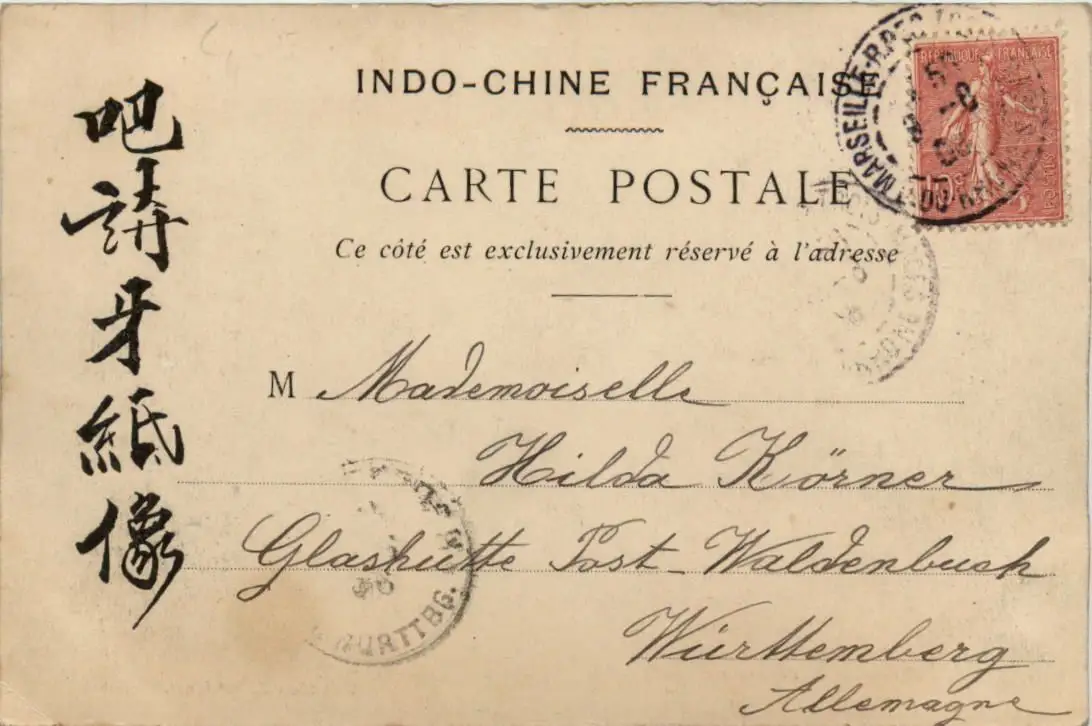 INDO-CHINE FRANÇAISE
CARTE POSTALE
Ce côté est exclusivement réservé à l'adresse
吧請牙紙像
RÉPUBLIQUE FRANÇAISE
MARSEILLE
M Mademoiselle
Hilda Körner
Glashütte Post Waldenbuch
Württemberg
Allemagne
WÜRTTBG.